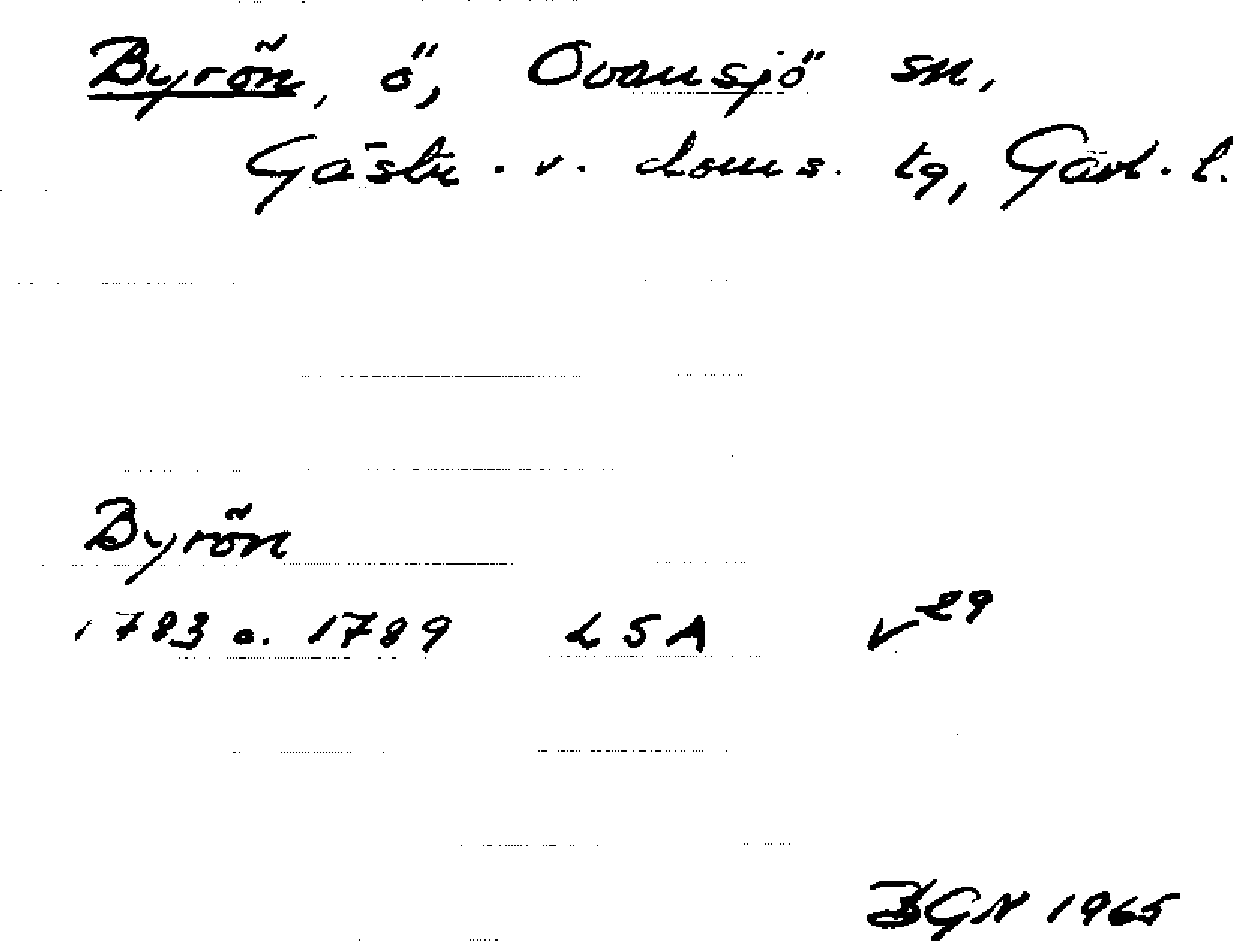 Byrön, ö, Ovansjö sn,
Gästr. v. doms. tg, Gävl. l.
Byrön
1783 o. 1789 LSA V 29
BGN 1965